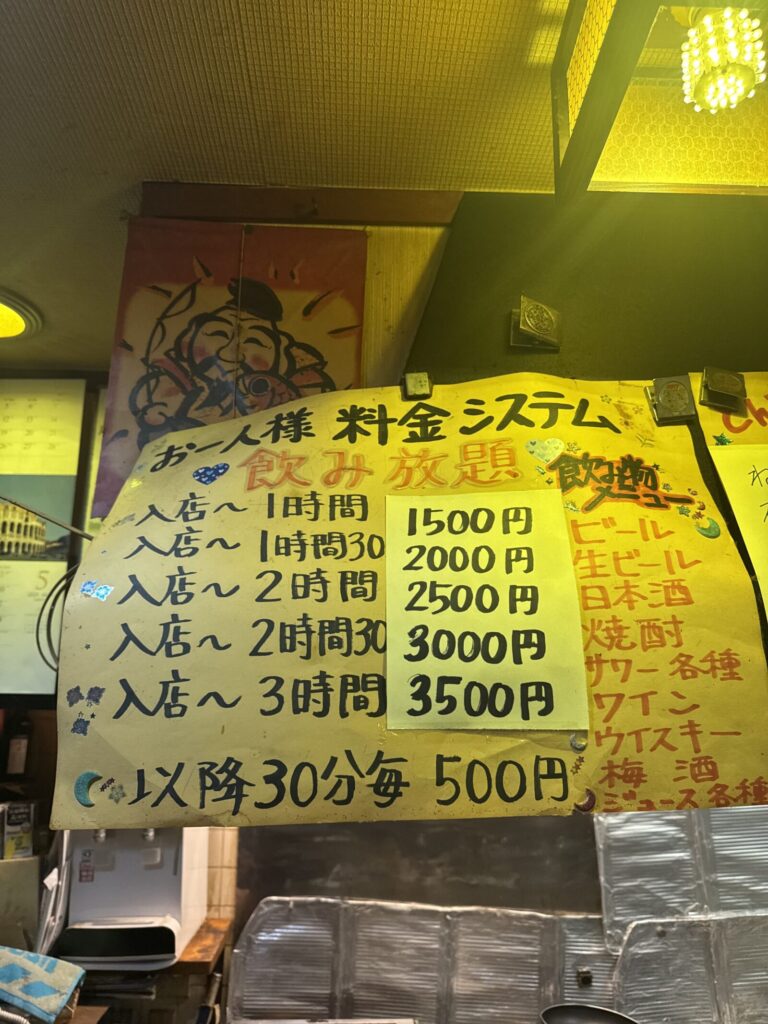 お一人様 料金システム
飲み放題
入店～1時間 1500円
入店～1時間30 2000円
入店～2時間 2500円
入店～2時間30 3000円
入店～3時間 3500円
以降30分毎 500円
飲み物
メニュー
ビール
生ビール
日本酒
焼酎
サワー各種
ワイン
ウイスキー
梅酒
ジュース各種
5